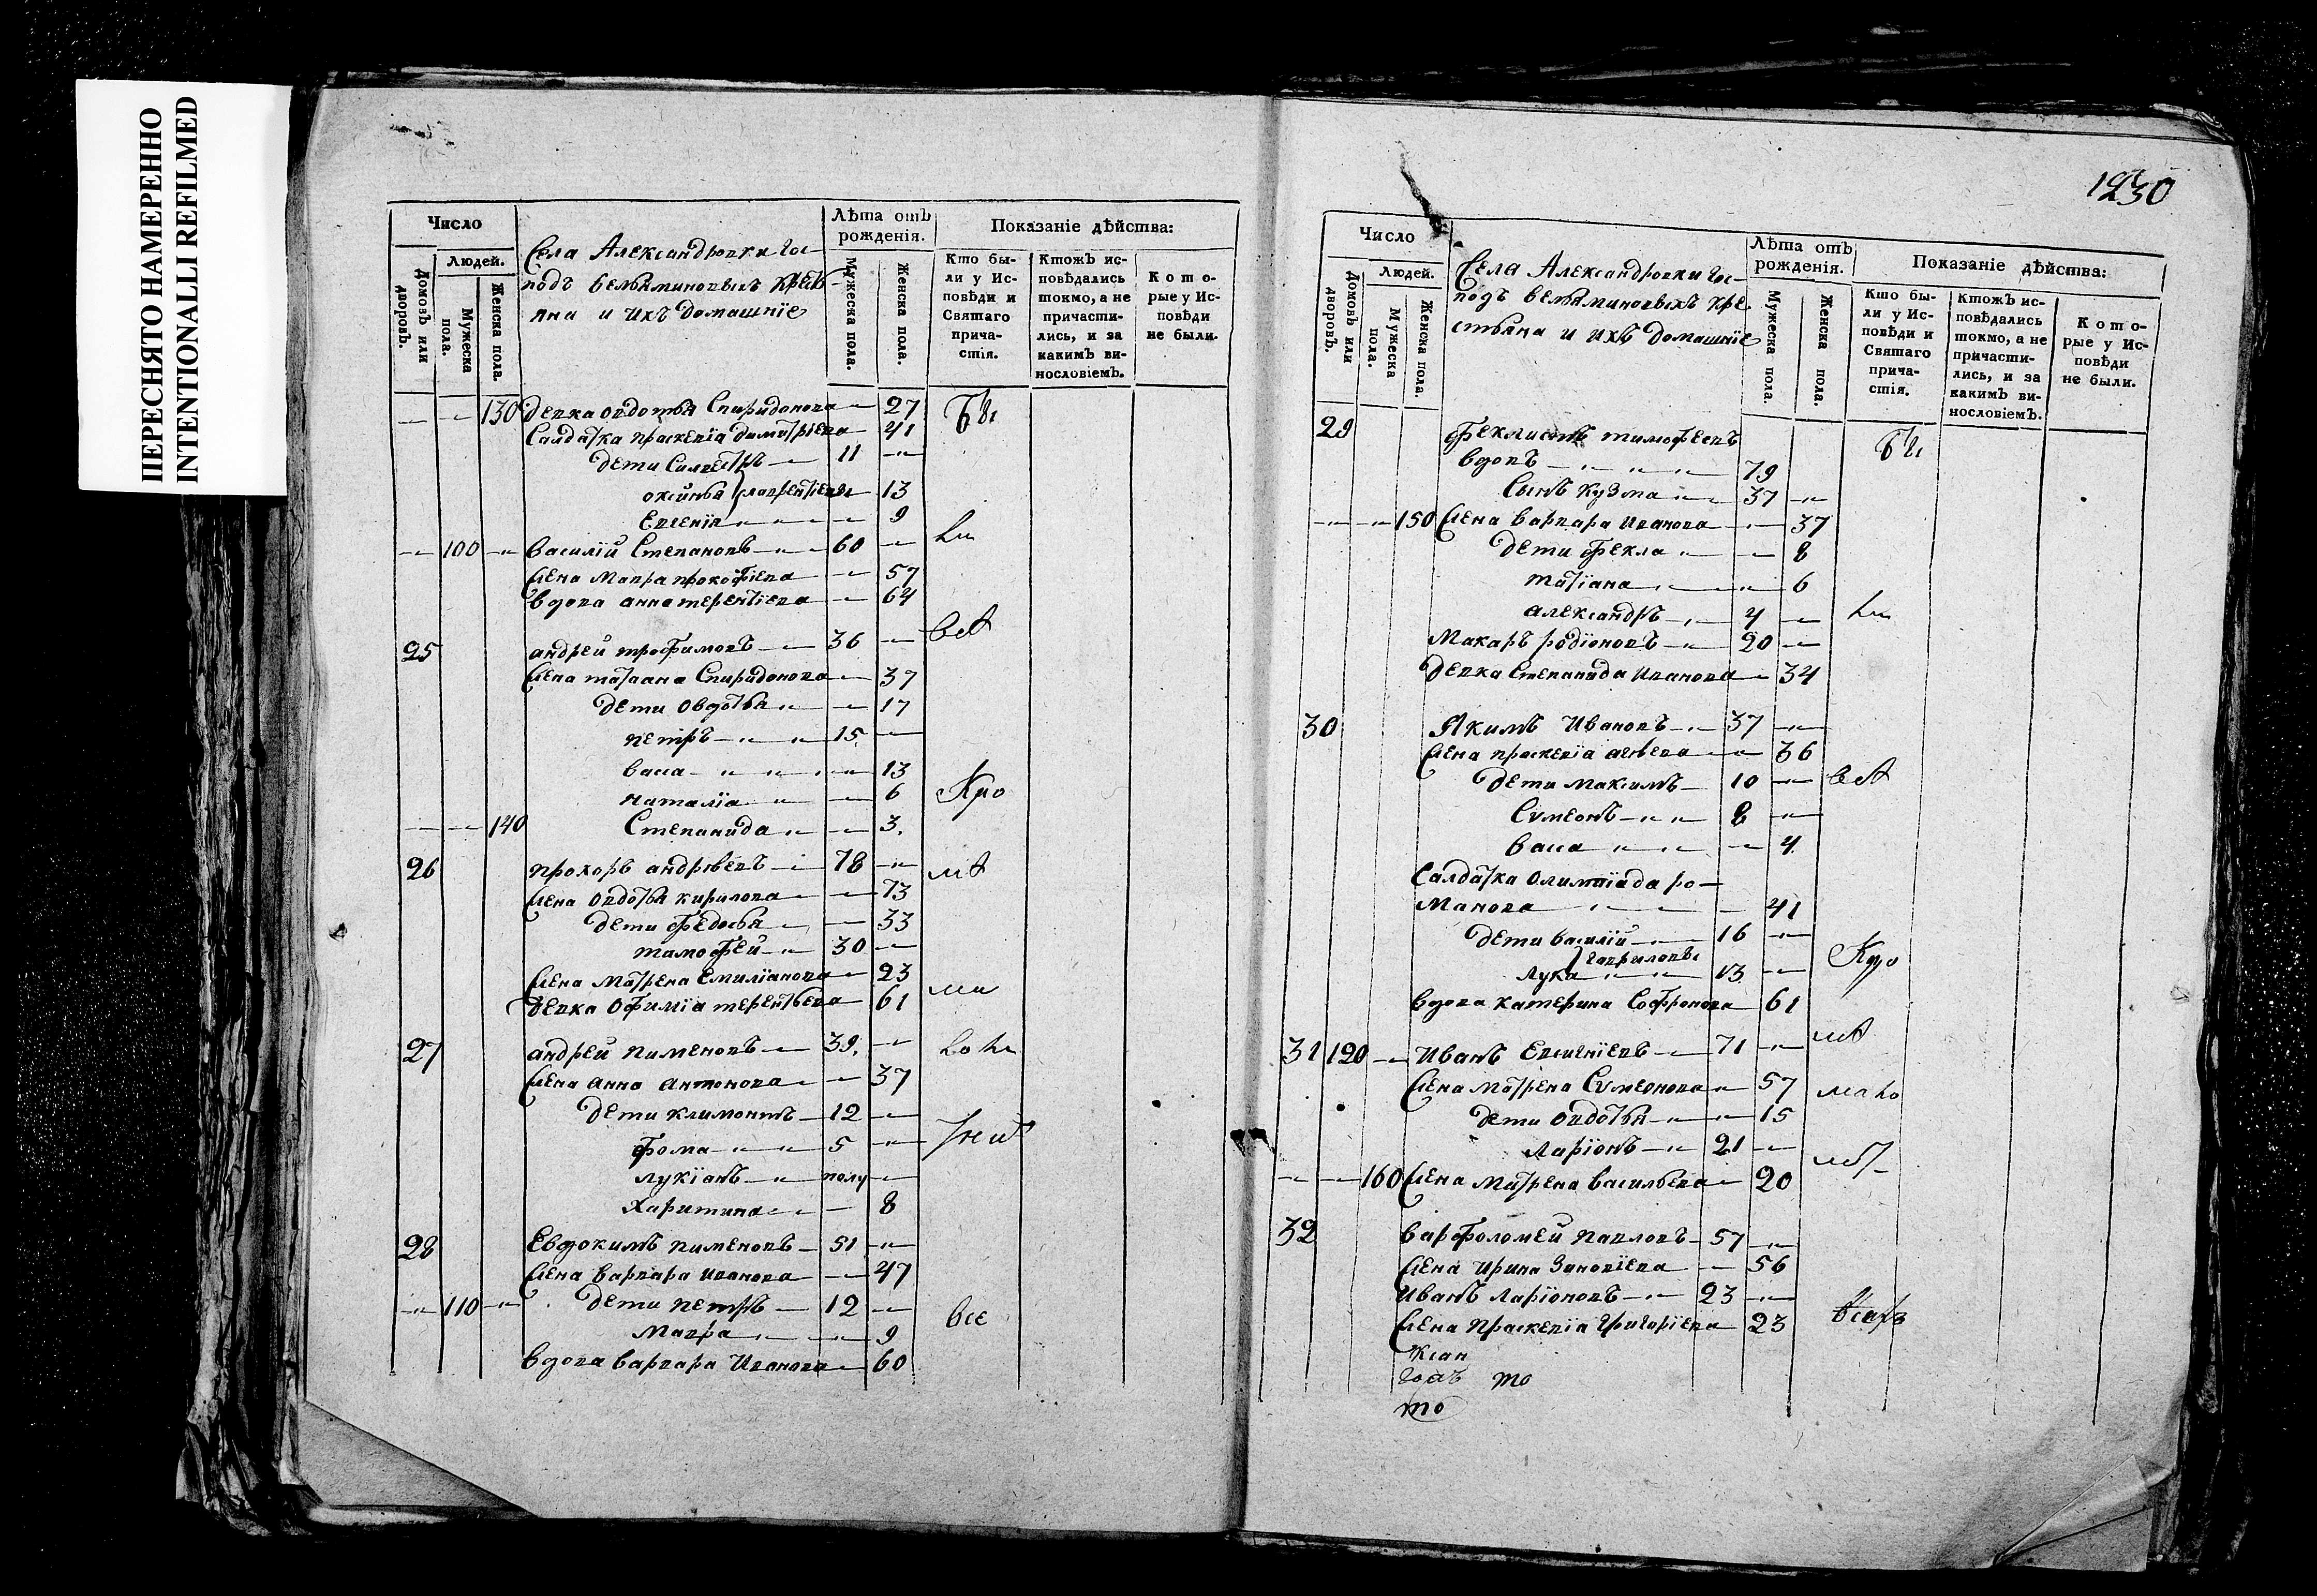 ПЕРЕСНЯТО НАМЕРЕННО
INTENTIONALLI REFILMED
Число
Людей.
Домовъ или дворовъ.
Мужеска пола.
Женска пола.
Села Александровки гос-
подъ вельяминовыхъ крест-
яна и ихъ домашніе
Лѣта отъ рожденія.
Мужеска пола.
Женска пола.
Показаніе дѣйства:
Кто бы-
ли у Ис-
повѣди и
Святаго
прича-
стія.
Ктожъ ис-
повѣдались
токмо, а не
причасти-
лись, и за
какимъ ви-
нословіемъ.
Кото-
рые у Ис-
повѣди
не были.
130 девка овдотья Спиридонова 27
Салдатка праскевіа димитріева 41
дети Силвестръ 11
оксинья лаврентіевы 13
Евгенія 9
100 василій Степановъ 60
жена мавра прокофіева 57
вдова анна терентіева 64
25 андрей трофимовъ 36
жена татиана Спиридонова 37
дети овдотья 17
петръ 15
васа 13
наталіа 6
140 Степанида 3
26 прохоръ андрѣевъ 78
жена овдотья кирилова 73
дети федосья 33
тимофей 30
жена матрена Емиліанова 23
девка офиміа терентьева 61
27 андрей пименовъ 39
жена анна антонова 37
дети климонтъ 12
фома 5
лукіанъ полу
харитина 8
28 Евдокимъ пименовъ 51
жена варвара иванова 47
110 дети петръ 12
мавра 9
все
вдова варвара Иванова 60
1230
Число
Людей.
Домовъ или дворовъ.
Мужеска пола.
Женска пола.
Села Александровки гос-
подъ вельяминовыхъ кре-
стьяна и ихъ домашніе
Лѣта отъ рожденія.
Мужеска пола.
Женска пола.
Показаніе дѣйства:
Кто бы-
ли у Ис-
повѣди и
Святаго
прича-
стія.
Ктожъ ис-
повѣдались
токмо, а не
причасти-
лись, и за
какимъ ви-
нословіемъ.
Кото-
рые у Ис-
повѣди
не были.
29 феклистъ тимофеевъ
вдовъ 79
Сынъ кузма 37
150 жена варвара иванова 37
дети фекла 8
татіана 6
александръ 4
макаръ родіоновъ 20
девка Степанида иванова 34
30 Якимъ Ивановъ 37
жена праскевіа 36
дети максимъ 10
Сѵмеонъ 8
васа 4
Салдатка олимпіада ро-
манова 41
дети василій 16
гавриловы
лука 13
вдова катерина Софронова 61
31 120 Иванъ Евгеніевъ 71
жена матрена Сѵмеонова 57
дети овдотья 15
ларіонъ 21
160 жена матрена васильева 20
32 варфоломей павловъ 57
жена ирина Зиновіева 56
иванъ ларіоновъ 23
жена праскевіа григоріева 23
то
то